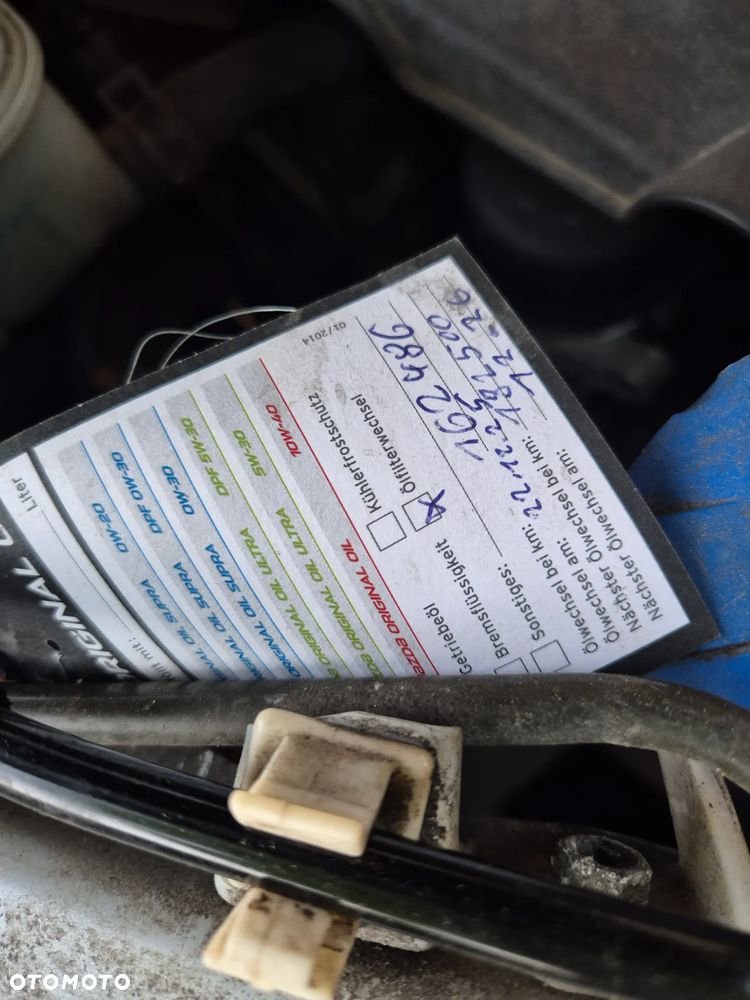 RIGINAL
llt mit: Liter
NAL OIL SUPRA 0W-20
GINAL OIL SUPRA DPF 0W-30
ORIGINAL OIL SUPRA 0W-30
ORIGINAL OIL ULTRA DPF 5W-30
ORIGINAL OIL ULTRA 5W-30
azda ORIGINAL OIL 10W-40
Getriebeöl Kühlerfrostschutz 01/2014
Bremsflüssigkeit x Ölfilterwechsel
Sonstiges:
Ölwechsel bei km: 162 486
Ölwechsel am: 22.12.25
Nächster Ölwechsel bei km: 182500
Nächster Ölwechsel am: 12-26
OTOMOTO